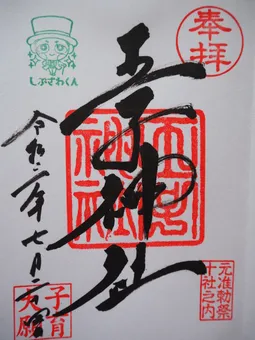 奉拝
元准勅祭
十社之内
王子神社
しぶさわくん
令和二年七月二
子育
大願